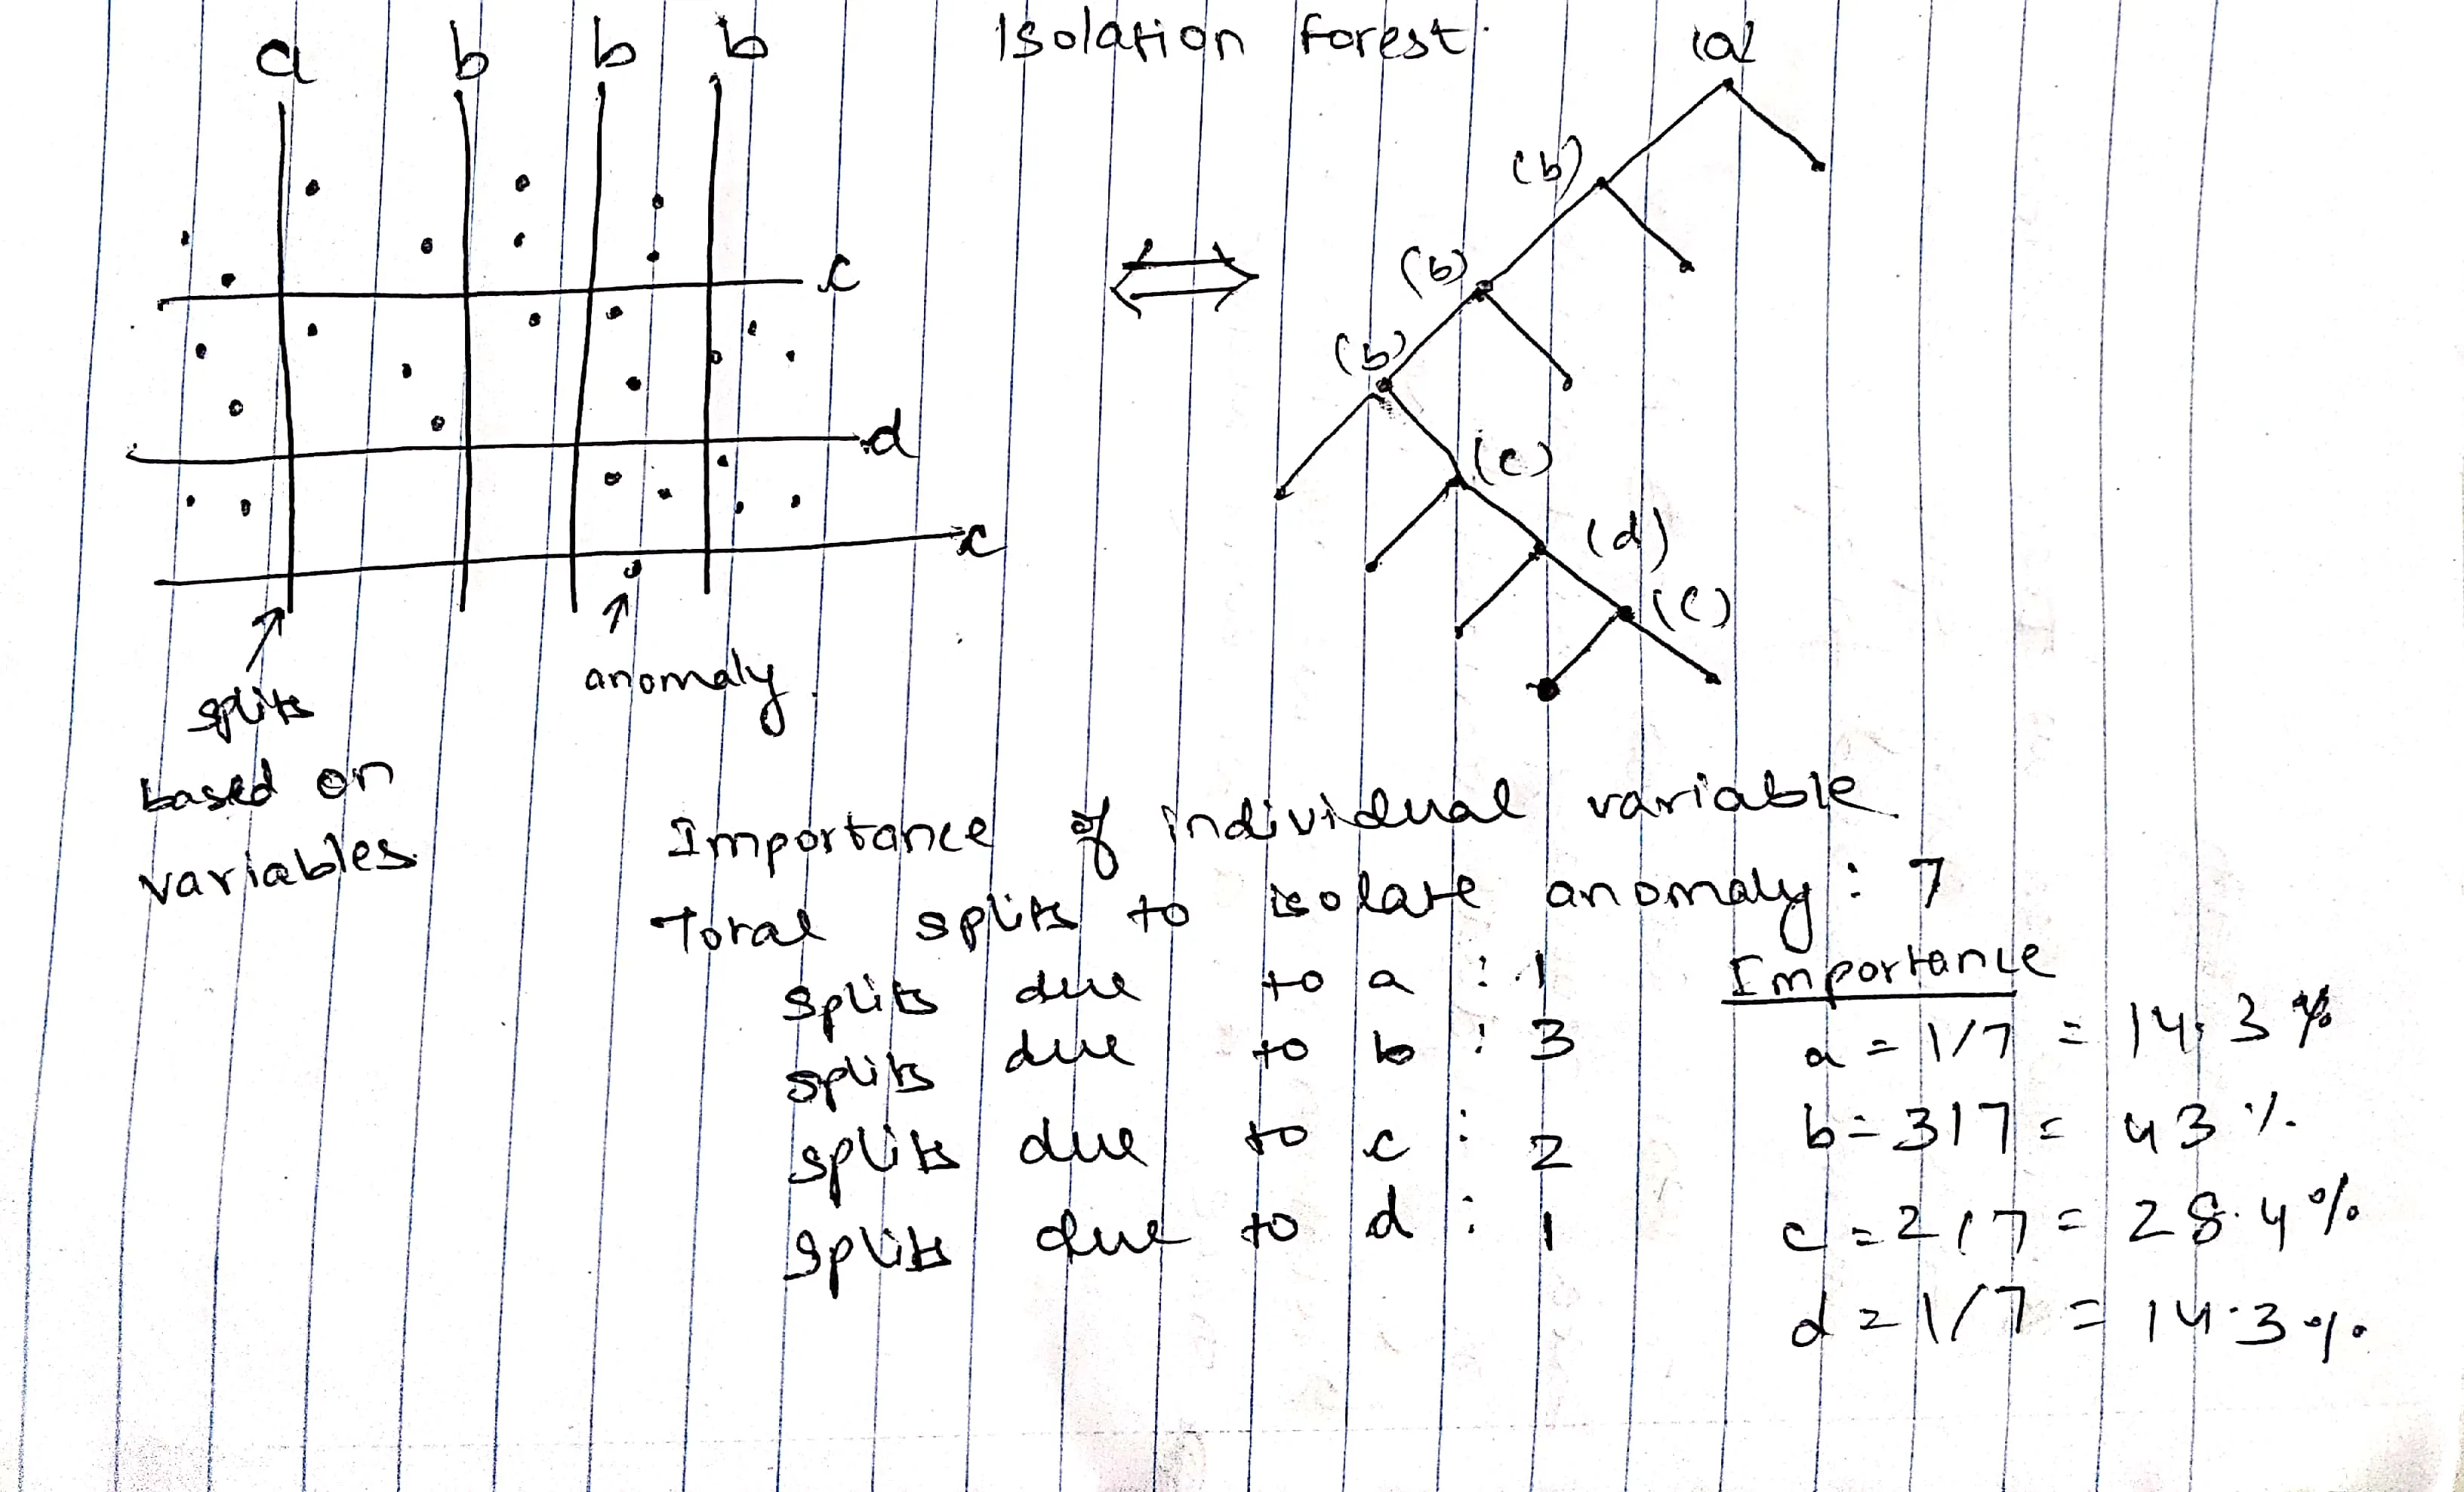 Isolation Forest.
a b b b
c
d
c
splits
based on
variables
anomaly
(a)
(b)
(b)
(b)
(c)
(d)
(c)
Importance of individual variable
Total splits to isolate anomaly : 7
splits due to a : 1
splits due to b : 3
splits due to c : 2
splits due to d : 1
Importance
a = 1/7 = 14.3 %
b = 3/7 = 43 %
c = 2/7 = 28.4 %
d = 1/7 = 14.3 %